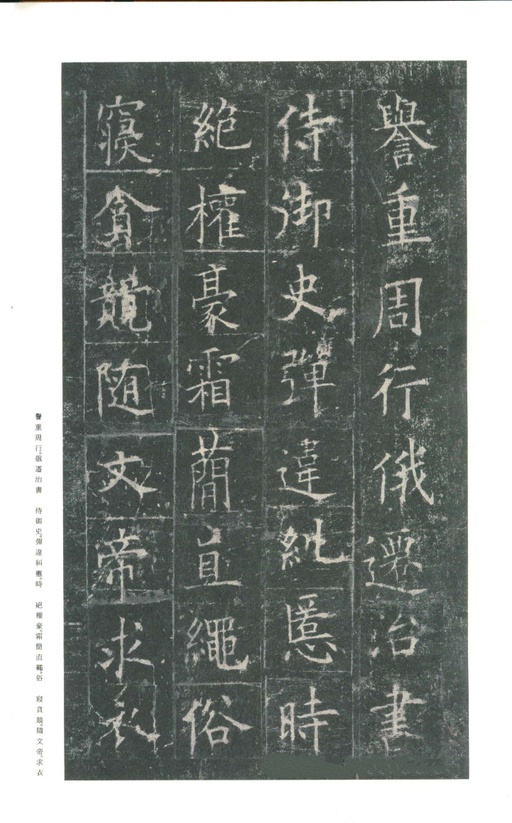 譽重周行俄遷治書
侍御史彈違糺慝時
絶權豪霜簡直繩俗
寢貪競隨文帝求衣
譽重周行俄遷治書 侍御史彈違糾慝時 絕權豪霜簡直繩俗 寢貪競隨文帝求衣